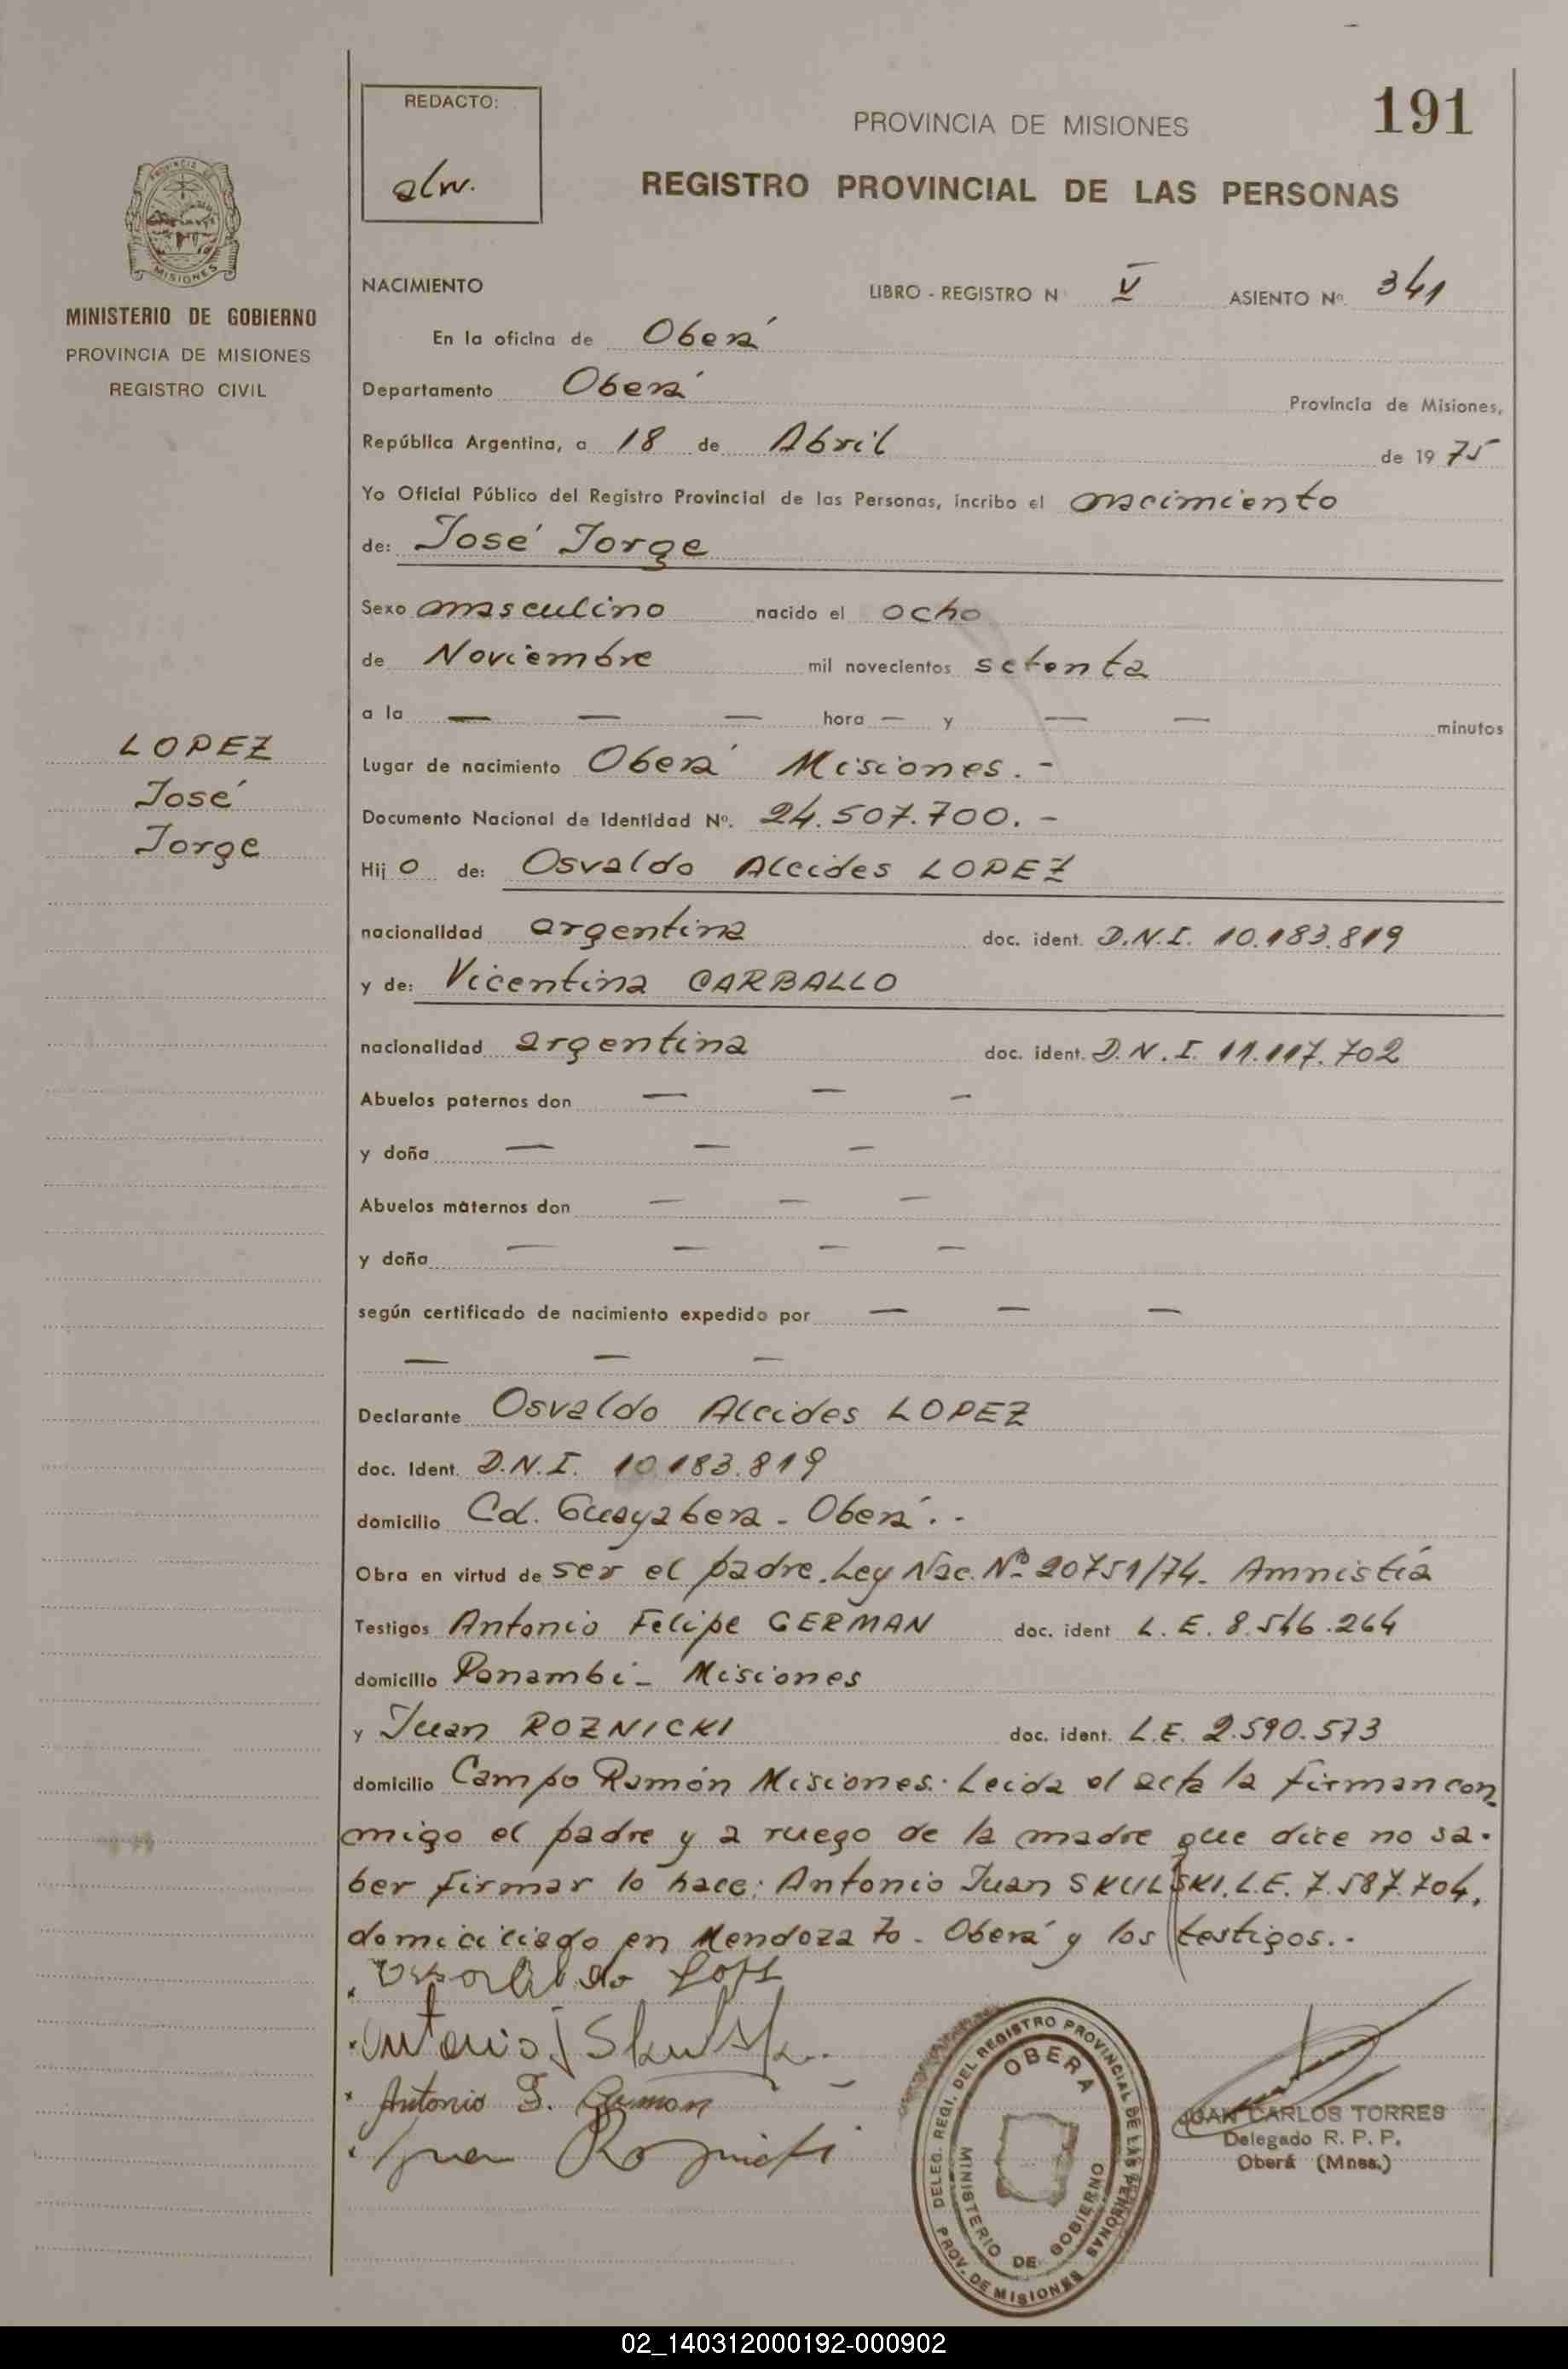 191
REDACTO:
alw.
PROVINCIA DE MISIONES
REGISTRO PROVINCIAL DE LAS PERSONAS
PROVINCIA DE MISIONES
MINISTERIO DE GOBIERNO
PROVINCIA DE MISIONES
REGISTRO CIVIL
NACIMIENTO LIBRO - REGISTRO N V ASIENTO Nº. 341
En la oficina de Oberá
Departamento Oberá Provincia de Misiones,
República Argentina, a 18 de Abril de 1975
Yo Oficial Público del Registro Provincial de las Personas, incribo el nacimiento
de: José Jorge
Sexo masculino nacido el ocho
de Noviembre mil novecientos setenta
a la — — — hora — y — — minutos
LOPEZ
José
Jorge
Lugar de nacimiento Oberá Misiones. -
Documento Nacional de Identidad Nº. 24.507.700. -
Hijo de: Osvaldo Alcides LOPEZ
nacionalidad argentina doc. ident. D.N.I. 10.183.819
y de: Vicentina CARBALLO
nacionalidad argentina doc. ident. D.N.I. 11.117.702
Abuelos paternos don — — —
y doña — — —
Abuelos maternos don — — —
y doña — — — —
según certificado de nacimiento expedido por — — —
— — —
Declarante Osvaldo Alcides LOPEZ
doc. Ident. D.N.I. 10.183.819
domicilio Cd. Guayabera - Oberá. -
Obra en virtud de ser el padre. Ley Nac. Nº 20751/74. Amnistía
Testigos Antonio Felipe GERMAN doc. ident L.E. 8.546.264
domicilio Panambi - Misiones
y Juan ROZNICKI doc. ident. L.E. 2.590.573
domicilio Campo Ramón Misiones. Leida el acta la firman con
migo el padre y a ruego de la madre que dice no sa-
ber firmar lo hace: Antonio Juan SKULSKI. L.E. 7.587.704,
domiciliado en Mendoza 70 - Oberá y los testigos. -
Antonio J Skulski
Antonio F. German
Juan Roznicki
DELEG. REGI. DEL REGISTRO PROVINCIAL DE LAS PERSONAS
OBERA
MINISTERIO DE GOBIERNO
PROV. DE MISIONES
JUAN CARLOS TORRES
Delegado R. P. P.
Oberá (Mnes.)
02_140312000192-000902